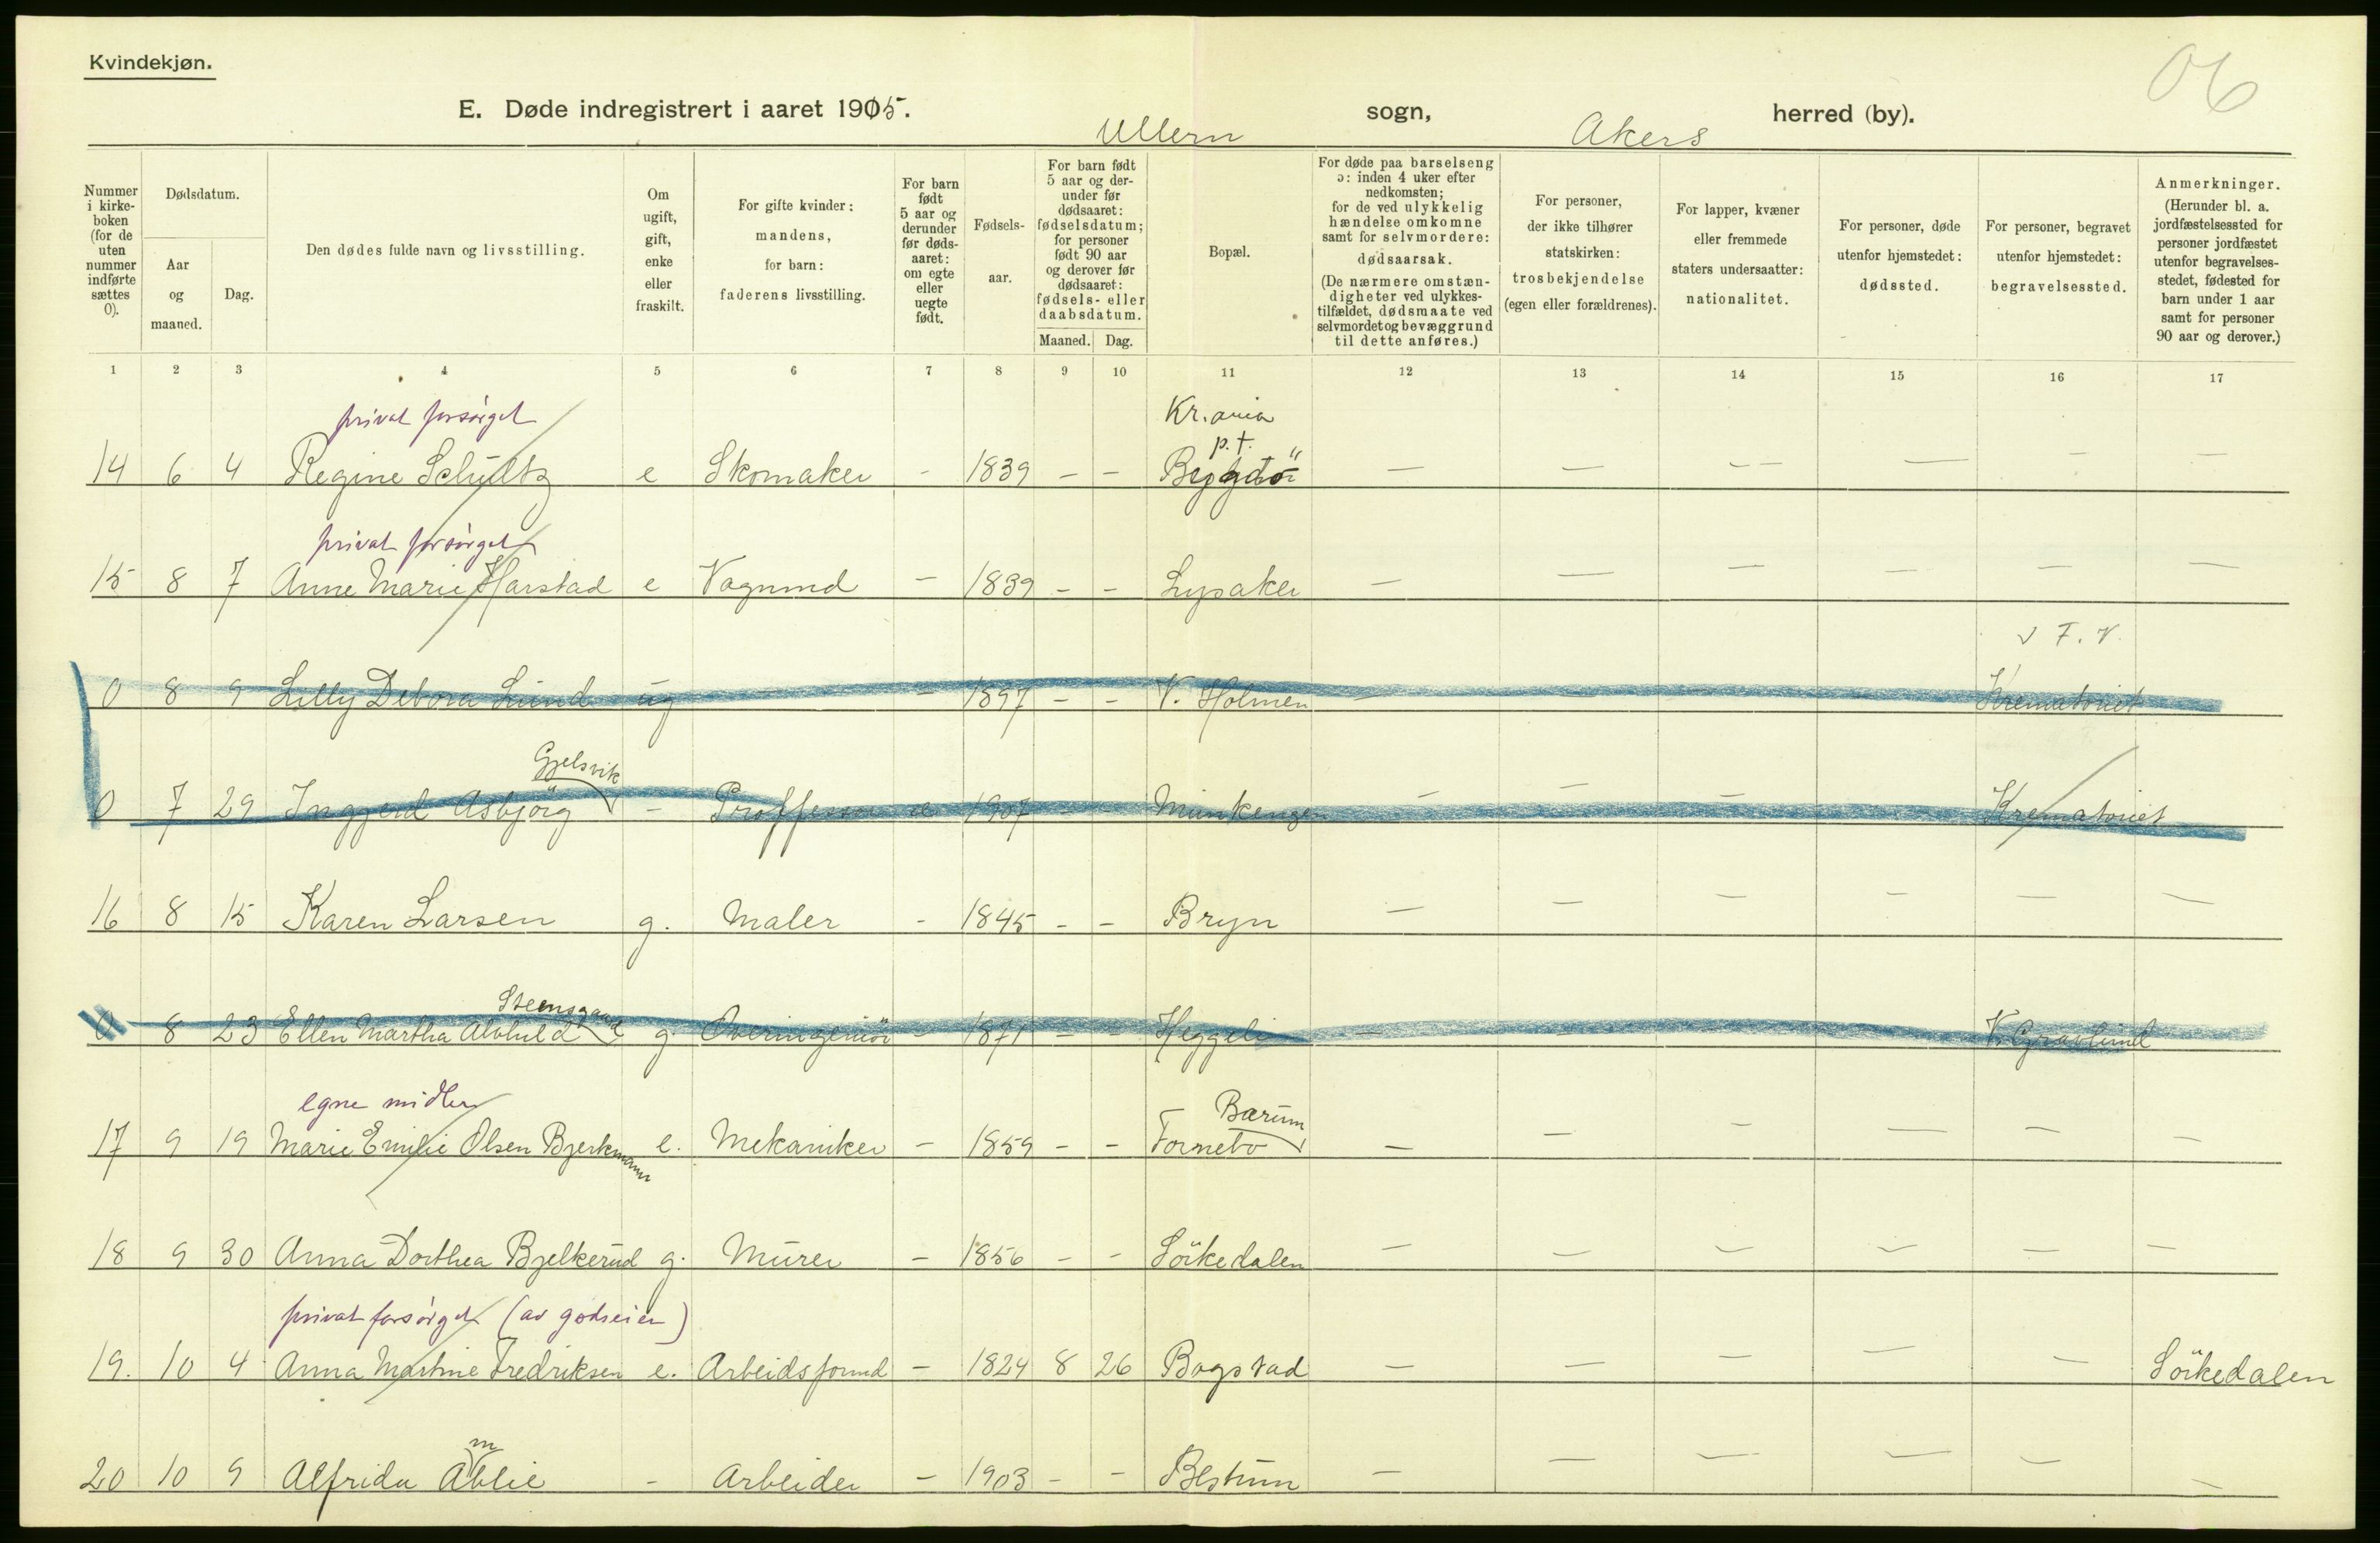 Kvindekjøn.
06
E. Døde indregistrert i aaret 1905. Ullern sogn, Akers herred (by).
Nummer i kirkeboken (for de uten nummer indførte sættes 0).
Dødsdatum.
Aar og maaned.
Dag.
Den dødes fulde navn og livsstilling.
Om ugift, gift, enke eller fraskilt.
For gifte kvinder: mandens, for barn: faderens livsstilling.
For barn født 5 aar og derunder før dødsaaret: om egte eller uegte født.
Fødselsaar.
For barn født 5 aar og derunder før dødsaaret: fødselsdatum; for personer født 90 aar og derover før dødsaaret: fødsels- eller daabsdatum.
Maaned. Dag.
Bopæl.
For døde paa barselseng ɔ: inden 4 uker efter nedkomsten; for de ved ulykkelig hændelse omkomne samt for selvmordere: dødsaarsak. (De nærmere omstændigheter ved ulykkestilfældet, dødsmaate ved selvmordet og bevæggrund til dette anføres.)
For personer, der ikke tilhører statskirken: trosbekjendelse (egen eller forældrenes).
For lapper, kvæner eller fremmede staters undersaatter: nationalitet.
For personer, døde utenfor hjemstedet: dødssted.
For personer, begravet utenfor hjemstedet: begravelsessted.
Anmerkninger. (Herunder bl. a. jordfæstelsessted for personer jordfæstet utenfor begravelsesstedet, fødested for barn under 1 aar samt for personer 90 aar og derover.)
1 2 3 4 5 6 7 8 9 10 11 12 13 14 15 16 17
privat forsørget Kr.ania
p.t.
14 6 4 Regine Schultz e Skomaker - 1839 - - Bygdö — — — — — —
privat forsørget
15 8 7 Anne Marie Harstad e Vognmd - 1839 - - Lysaker — — — — — —
√ F. V.
0 8 9 Lilly Debora Lund ug - 1897 - - V. Holmen — — — — Krematoriet
Gjelsvik
0 7 29 Inggerd Asbjörg - Proffessor e 1907 - - Munkengen — — — Krematoriet
16 8 15 Karen Larsen g. Maler - 1845 - - Bryn — — — — — —
Steensgaard
0 8 23 Ellen Martha Alvhild g. Overingeniör - 1871 - - Heggeli — V. Gravlund
egne midler Bærum
17 9 19 Marie Emilie Olsen Bjerkmann e. Mekaniker - 1859 - - Fornebo — — — — — —
18 9 30 Anna Dorthea Bjelkerud g. Murer - 1856 - - Sörkedalen — — — — — —
privat forsørget (av godseier)
19. 10 4 Anna Martine Fredriksen e. Arbeidsformd - 1824 8 26 Bogstad — — — — — Sörkedalen
m
20 10 9 Alfrida Ablie - Arbeider - 1903 - - Bestum — — — — — —